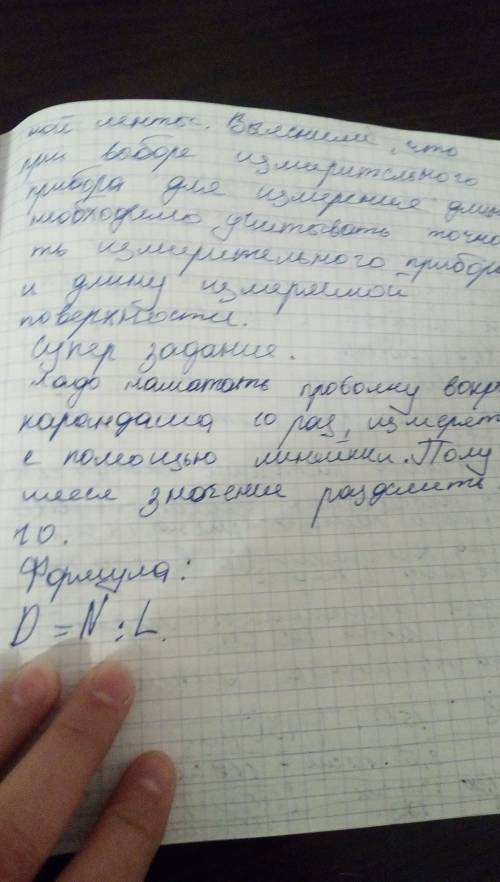 ной ленты. Выяснили, что
при выборе измерительного
прибора для измерения длины
необходимо учитывать точнос
ть измерительного прибора
и длину измеряемой
поверхности.
Супер задание.
Надо наматать проволку вокр
карандаша 10 раз, измерят
с помощью линейки. Полу
шееся значение разделить
10.
Формула:
D = N : L.